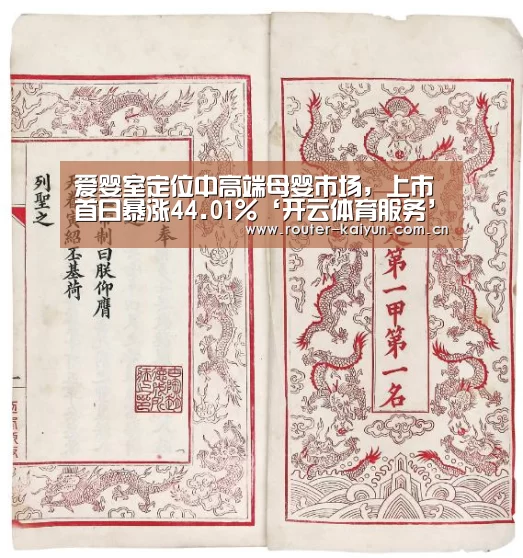 爱婴室定位中高端母婴市场，上市
首日暴涨44.01%‘开云体育服务’
www.router-kaiyun.com.cn
第一甲第一名
奉
制曰朕仰膺
天眷寅紹丕基荷
列聖之